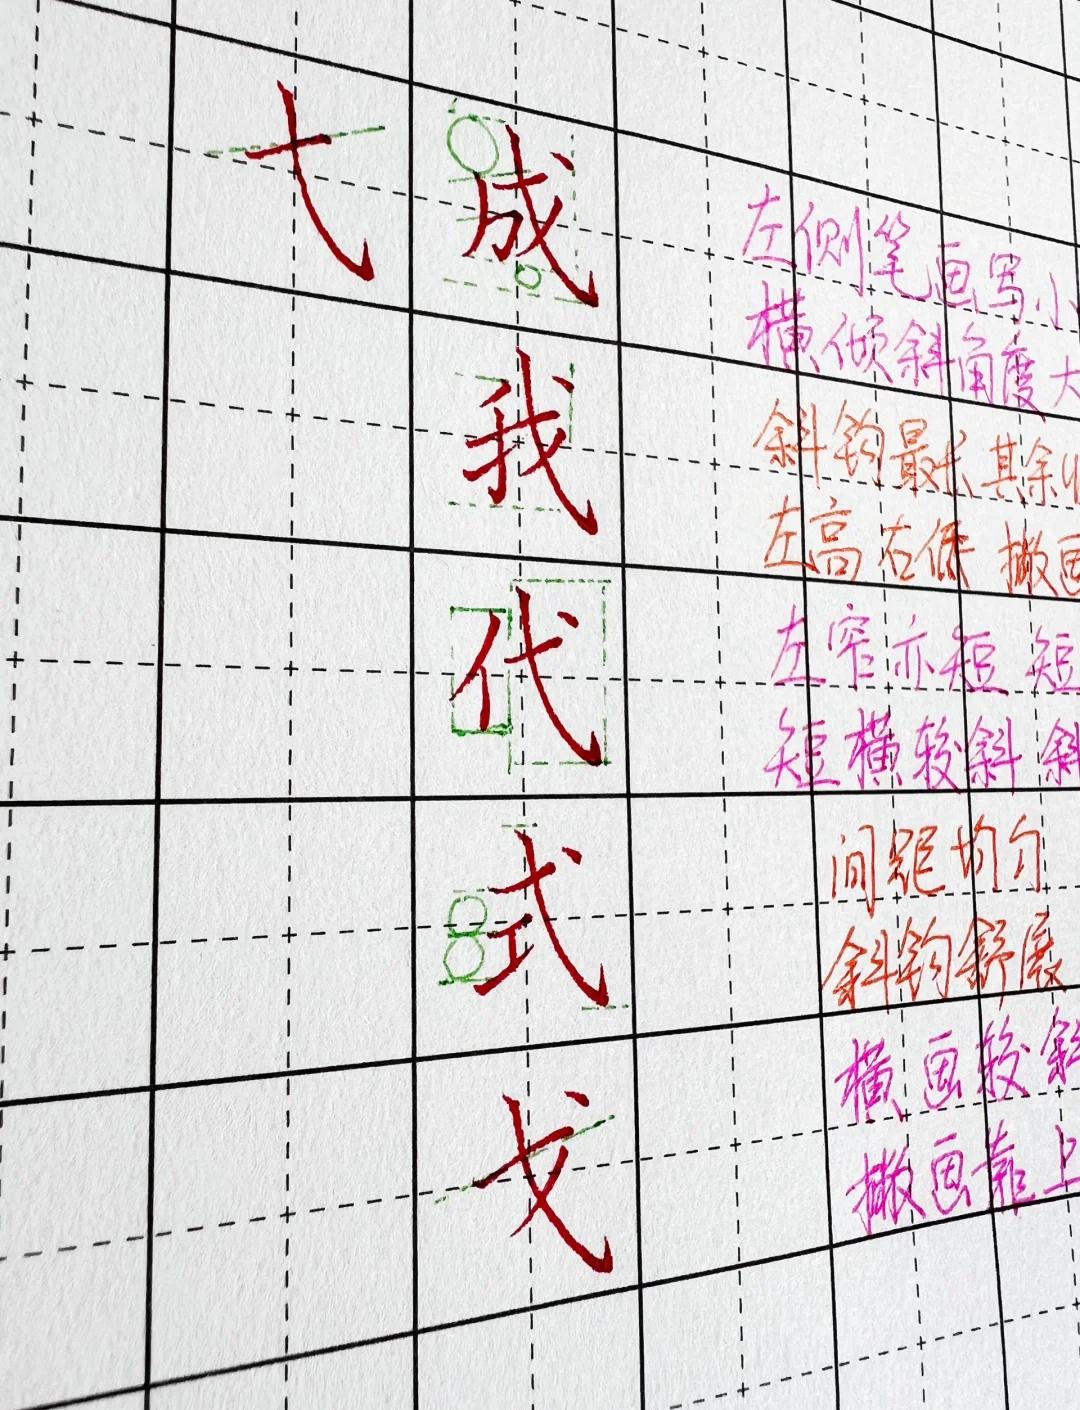 成
左侧笔画写小
横倾斜角度大
我
斜钩最长其余
左高右低 撇画
代
左窄亦短 短
短横较斜 斜
式
间距均匀
斜钩舒展
戈
横画较斜
撇画靠上